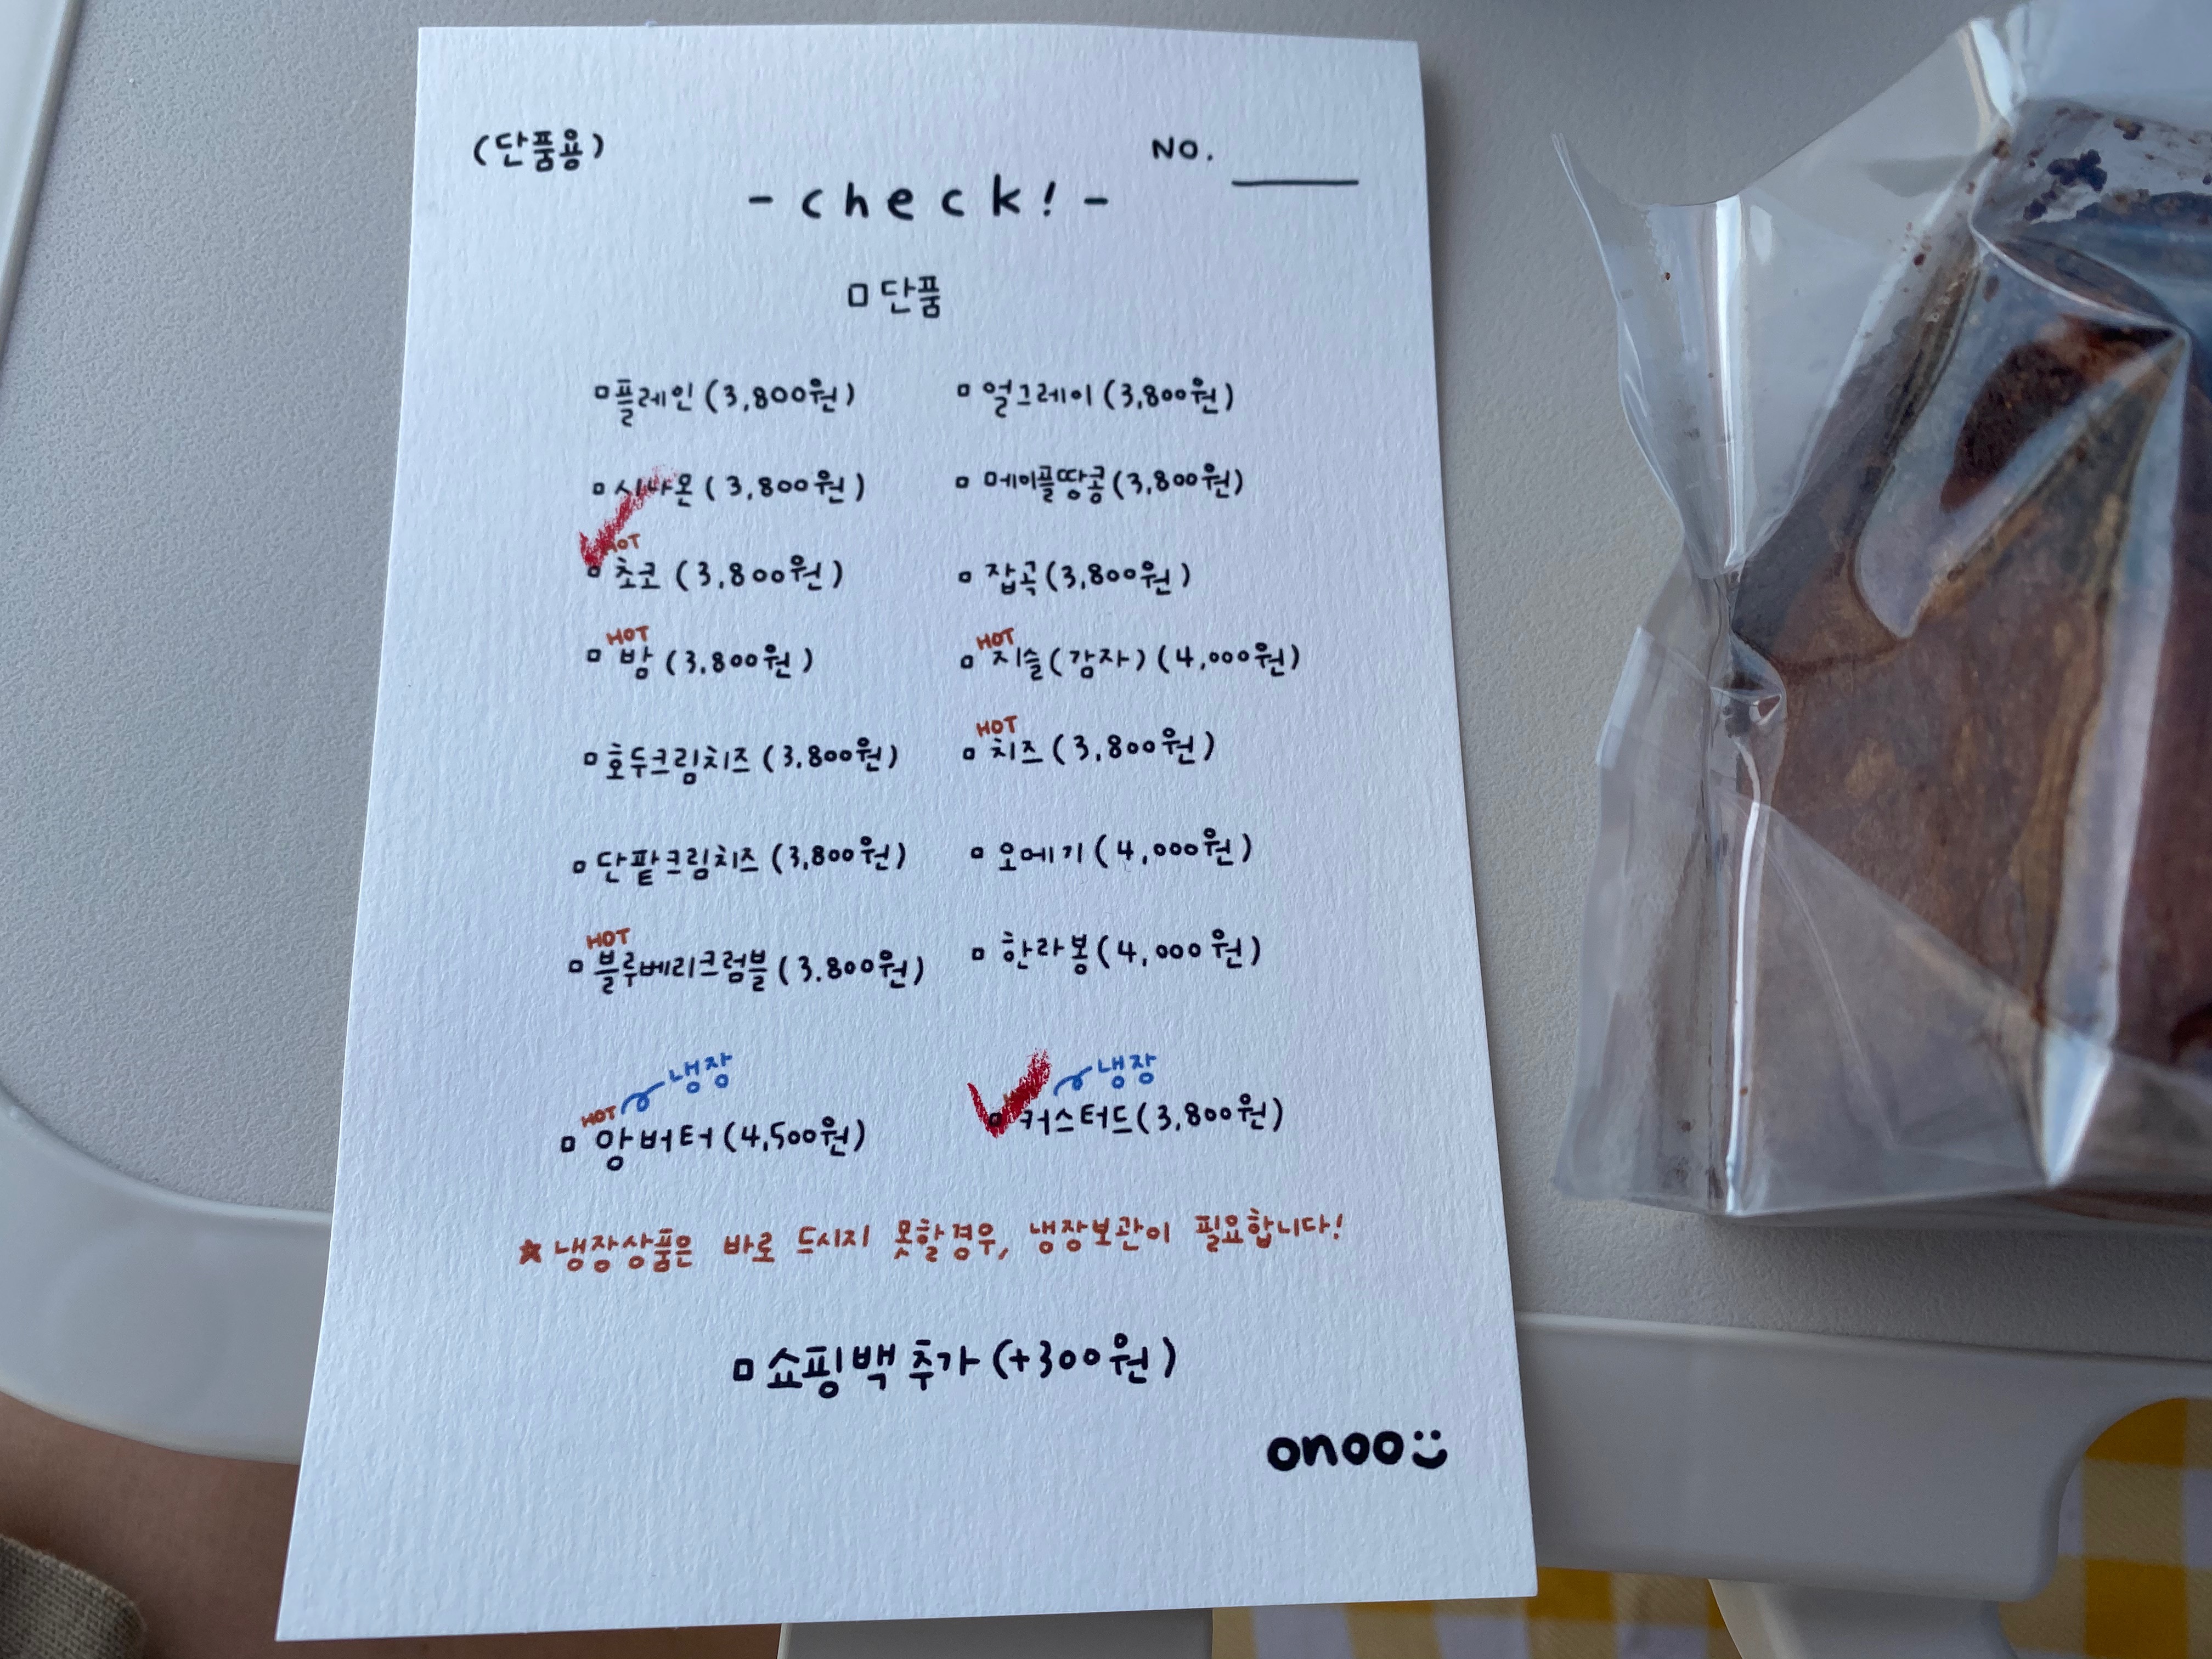 (단품용)
NO.
- check! -
단품
플레인 (3,800원)
얼그레이 (3,800원)
시나몬 (3,800원)
메이플땅콩 (3,800원)
HOT
초코 (3,800원)
잡곡 (3,800원)
HOT
밤 (3,800원)
HOT
지슬(감자) (4,000원)
호두크림치즈 (3,800원)
HOT
치즈 (3,800원)
단팥크림치즈 (3,800원)
오메기 (4,000원)
HOT
블루베리크럼블 (3.800원)
한라봉 (4,000원)
HOT 냉장
앙버터 (4,500원)
냉장
커스터드 (3,800원)
★ 냉장상품은 바로 드시지 못할경우, 냉장보관이 필요합니다!
쇼핑백 추가 (+300원)
onoo